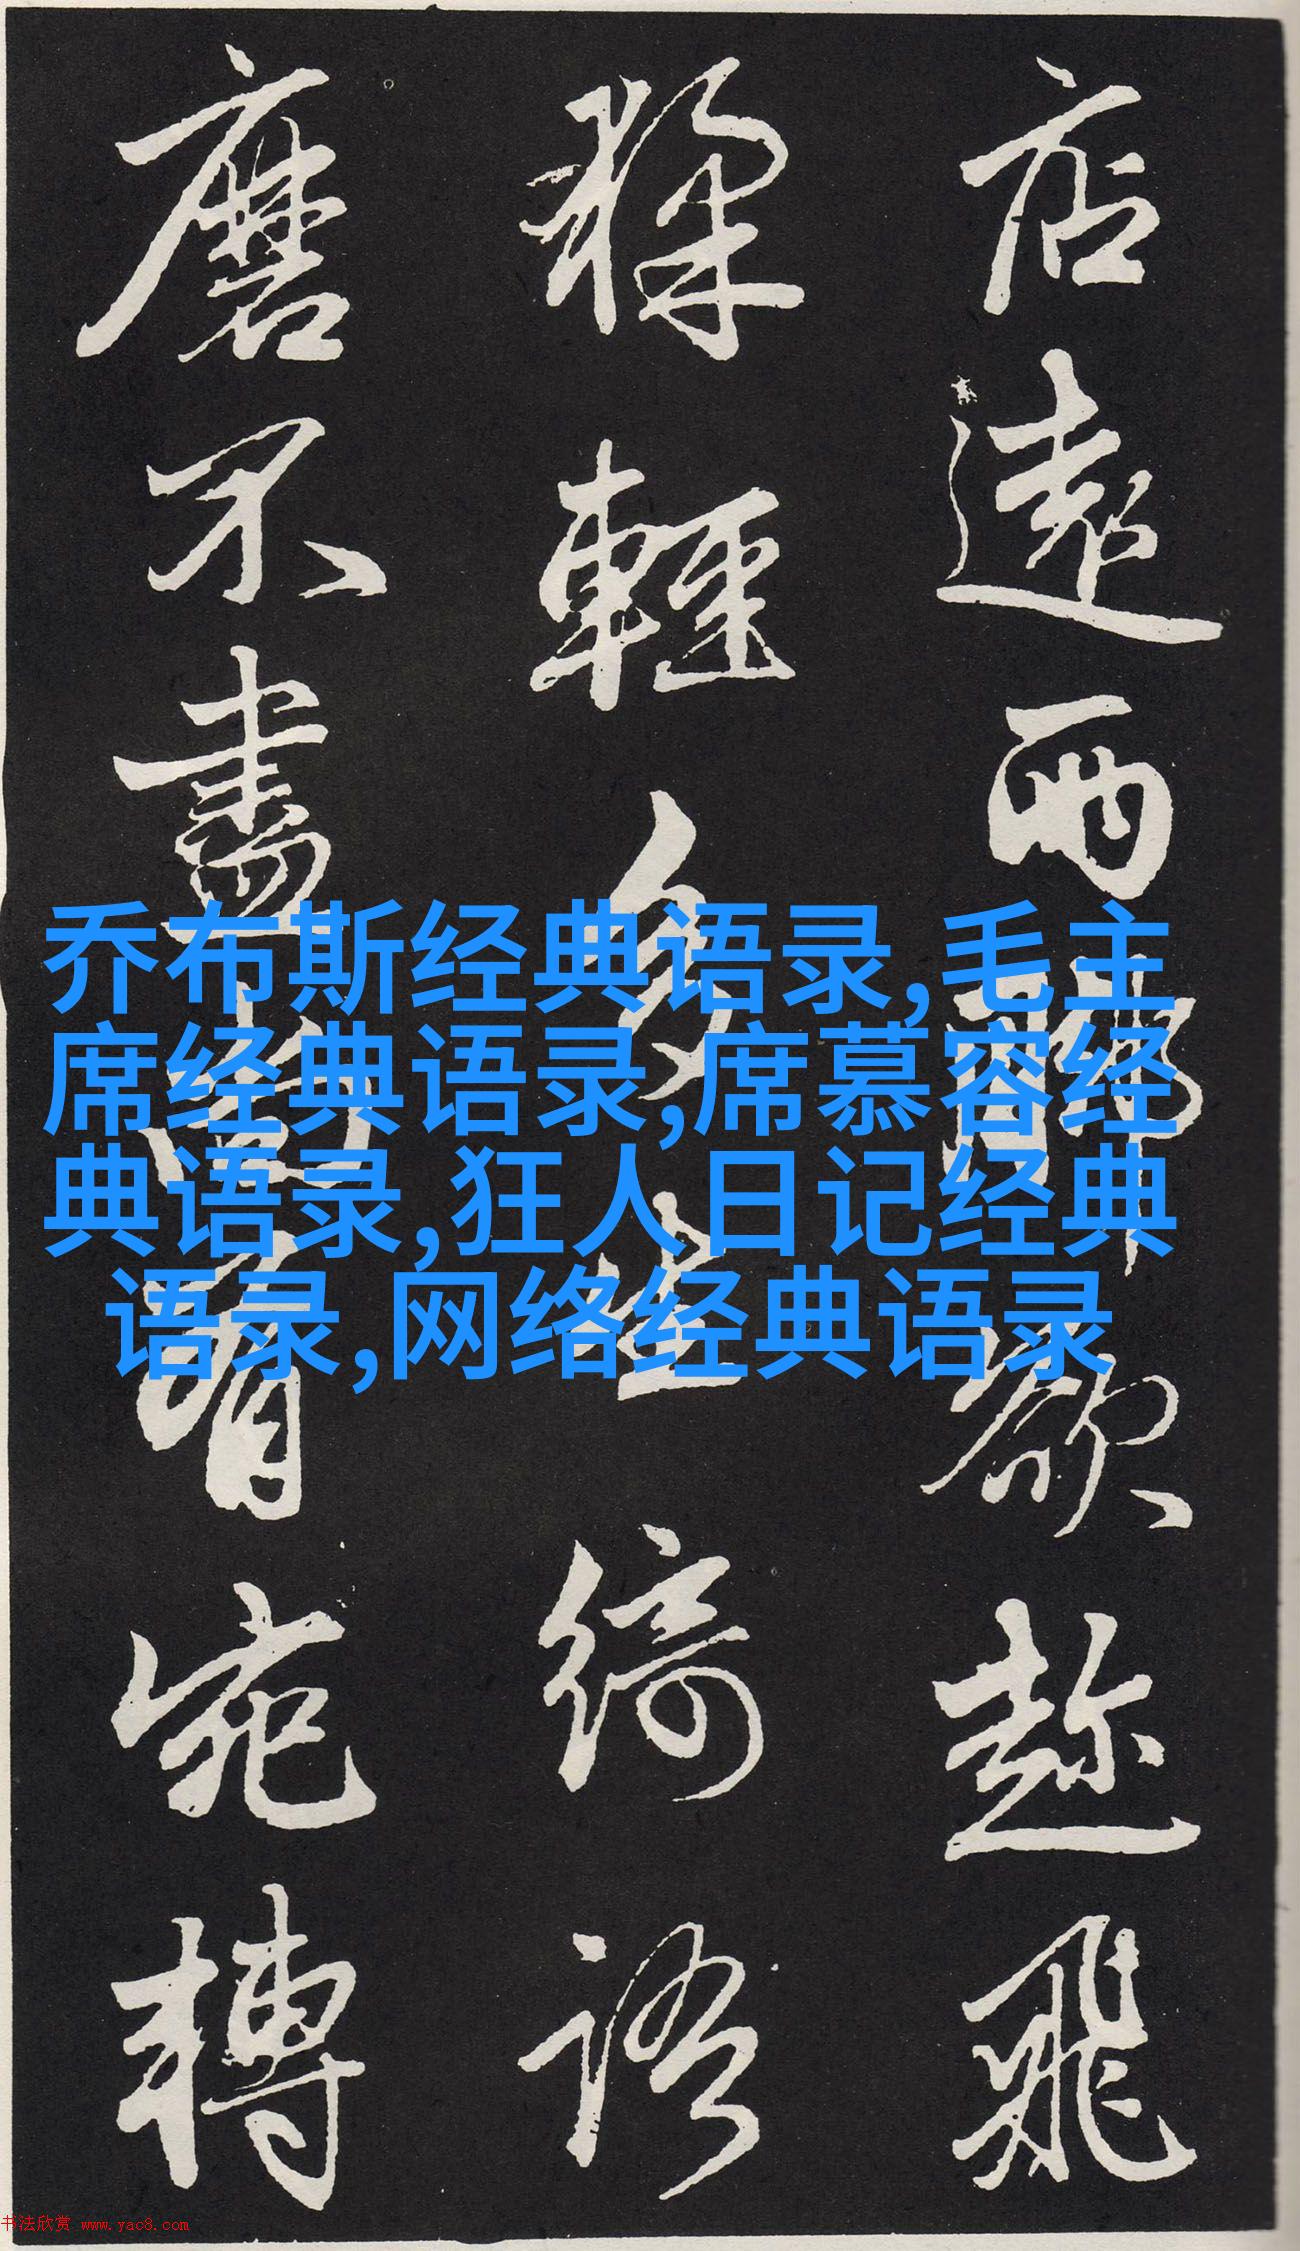 店遠兩腳欲趁飛
猱輕多生綺語
磨不盡尚有宛轉
乔布斯经典语录,毛主
席经典语录,席慕容经
典语录,狂人日记经典
语录,网络经典语录
书法欣赏 www.yac8.com